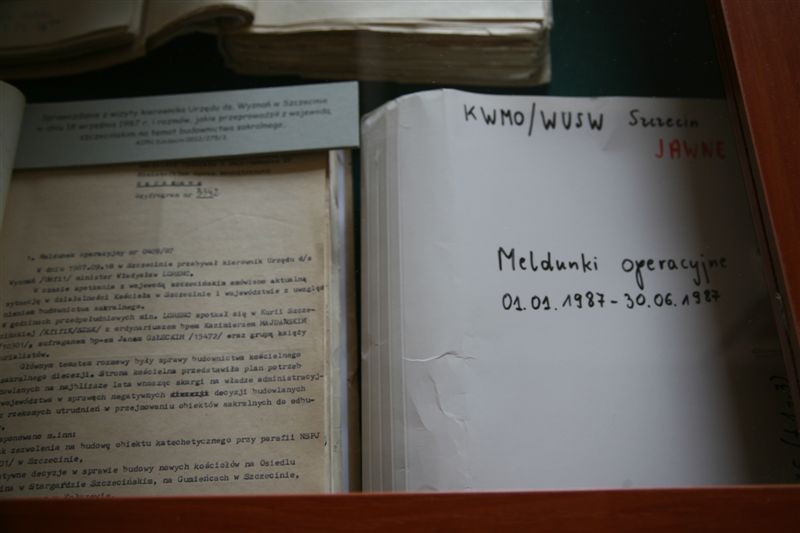 Sprawozdanie z wizyty kierownika Urzędu ds. Wyznań w Szczecinie
w dniu 18 września 1987 r. i rozmów, jakie przeprowadził z wojewodą
szczecińskim na temat budownictwa sakralnego.
szyfrogram nr 3342
1. Meldunek operacyjny nr 0409/87
W dniu 1987.09.18 w Szczecinie przebywał kierownik Urzędu d/s
Wyznań minister Władysław LORANC.
W czasie spotkania z wojewodą szczecińskim omówiono aktualną
sytuację w działalności Kościoła w Szczecinie i województwie z uwzględ
nieniem budownictwa sakralnego.
W godzinach przedpołudniowych min. LORANC spotkał się w Kurii Szcze-
cińskiej z ordynariuszem bpem Kazimierzem MAJDAŃSKIM
/10301/, sufraganem bp-em Janem GAŁECKIM /15472/ oraz grupą księży
kurialistów.
Głównym tematem rozmowy były sprawy budownictwa kościelnego
sakralnego diecezji. Strona kościelna przedstawiła plan potrzeb
budowlanych na najbliższe lata wnosząc skargi na władze administracyj-
województwa w sprawach negatywnych decyzji budowlanych
z rzekomych utrudnień w przejmowaniu obiektów sakralnych do odbu-
ponowano m.inn:
k zezwolenia na budowę obiektu katechetycznego przy parafii NSPJ
01/ w Szczecinie,
atywne decyzje w sprawie budowy nowych kościołów na Osiedlu
ina w Stargardzie Szczecińskim, na Gumieńcach w Szczecinie,
KWMO/WUSW Szczecin
JAWNE
Meldunki operacyjne
01.01.1987-30.06.1987